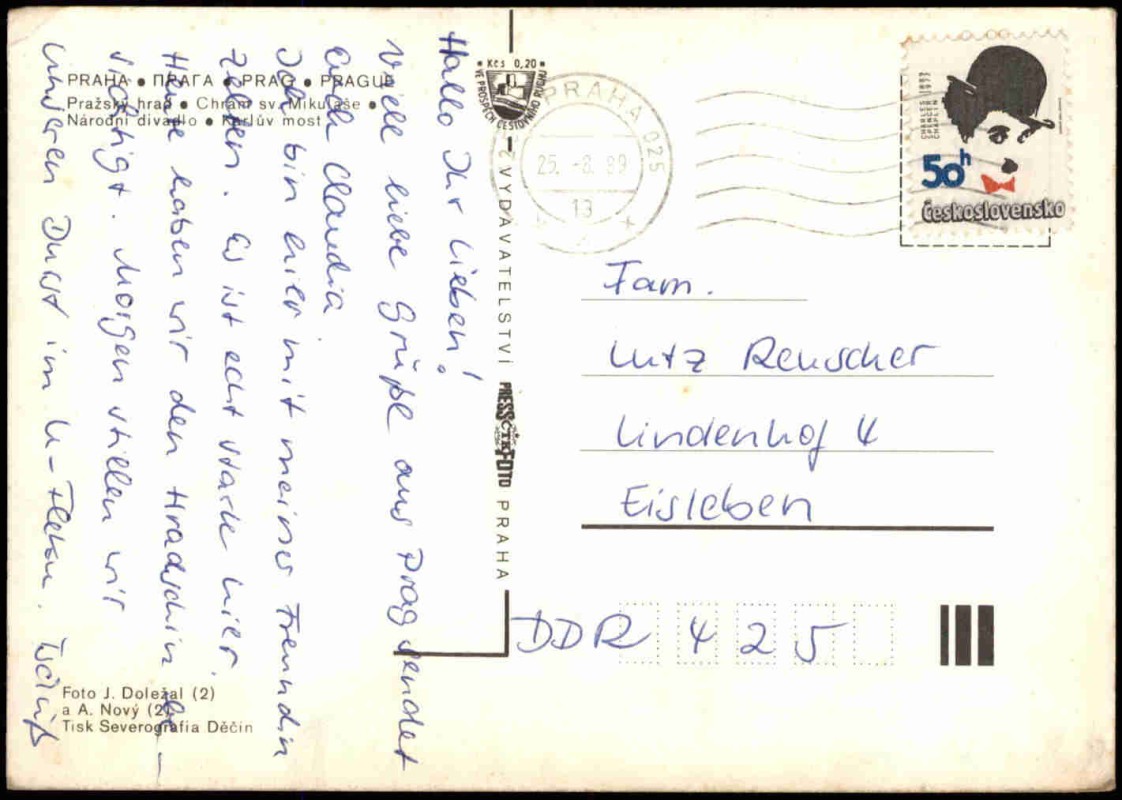 PRAHA • ПРАГА • PRAG • PRAGUE
Pražský hrad • Chrám sv. Mikuláše •
Národní divadlo • Karlův most
Hallo Ihr Lieben!
Viele liebe Grüße aus Prag sendet
Euch Claudia
Ich bin hier mit meiner Freundin
zelten. Es ist echt stark hier.
Heute haben wir den Hradschin be-
sichtigt. Morgen stillen wir
unseren Durst im U-Fleku. Tschüß
Foto J. Doležal (2)
a A. Nový (2)
Tisk Severografia Děčín
• Kčs 0,20 •
VE PROSPĚCH CESTOVNÍHO RUCHU
VYDAVATELSTVÍ PRESSFOTO PRAHA
ČTK
PRAHA 025
25.-8.89
13
CHARLES 1889
SPENCER 1977
CHAPLIN
50h
Československo
Fam.
Lutz Reuscher
Lindenhof 4
Eisleben
DDR 425